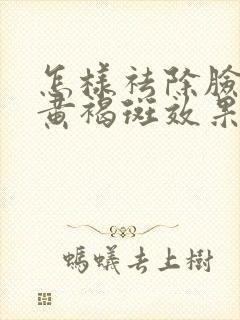 怎樣祛除臉
黃褐斑效果
螞蟻去上樹